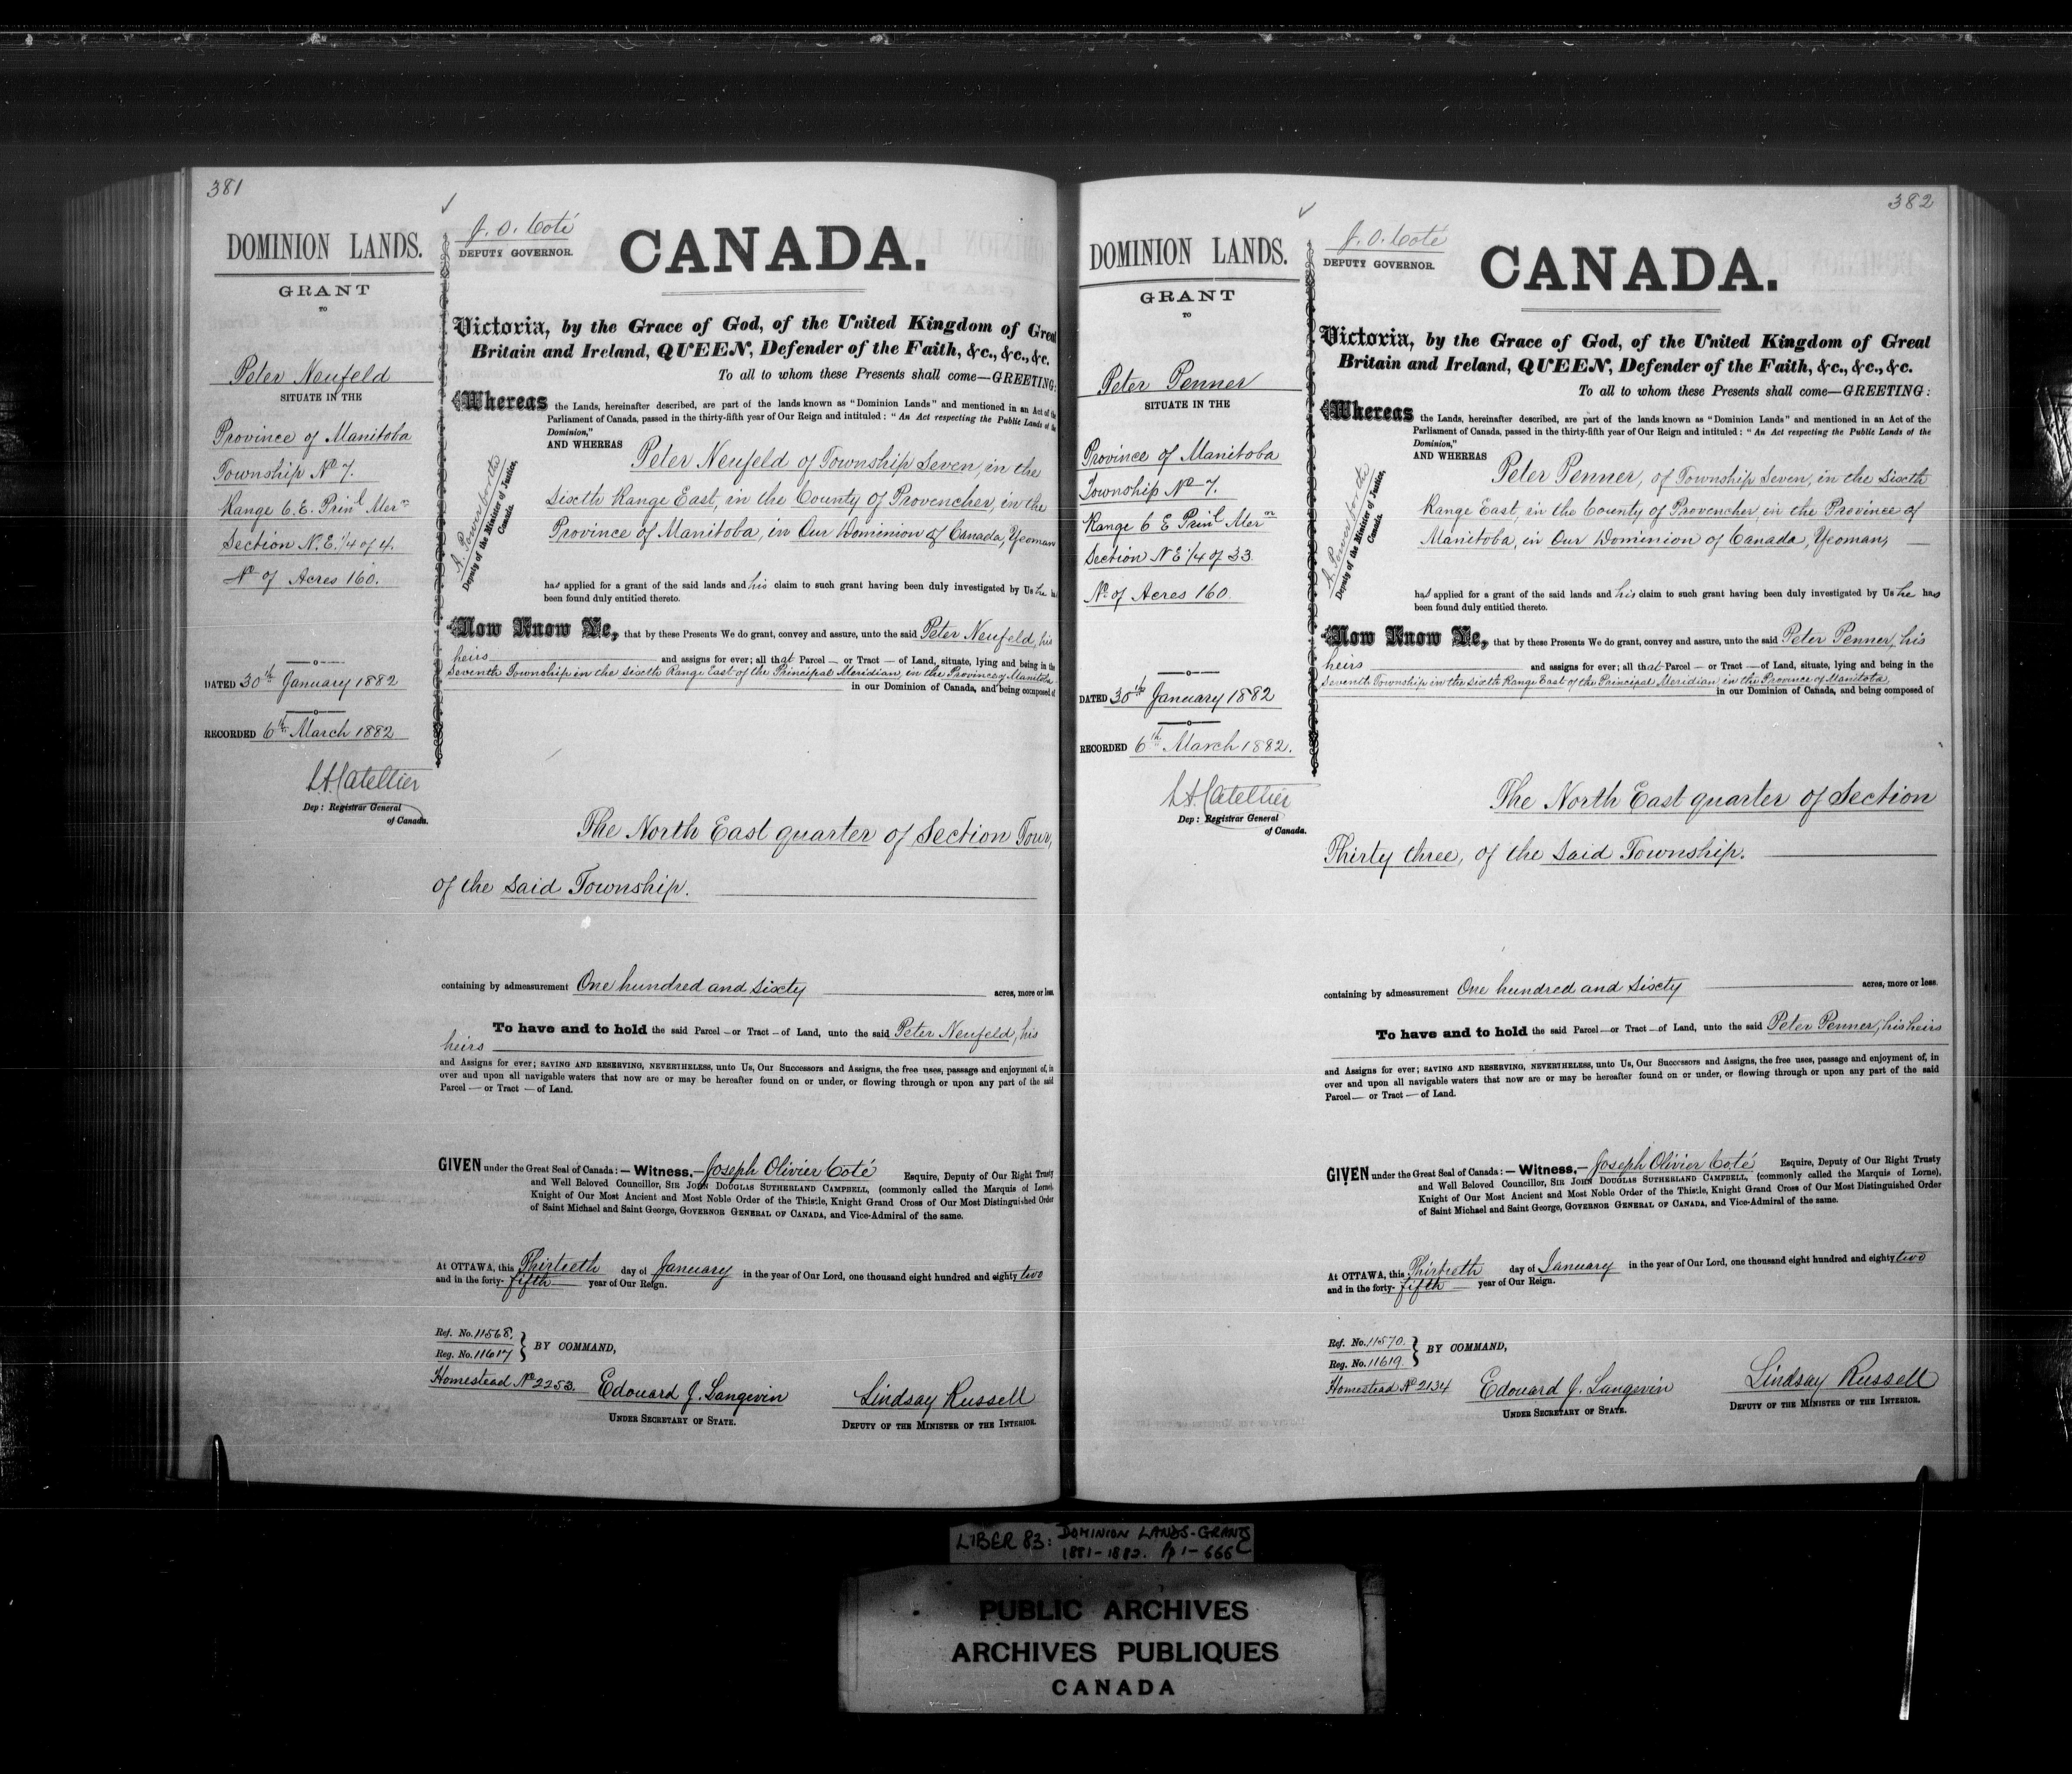 381
DOMINION LANDS.
GRANT
TO
Peter Neufeld
SITUATE IN THE
Province of Manitoba
Township No 7.
Range 6. E. Prinl Mern
Section N.E. 1/4 of 4.
No of Acres 160.
DATED 30th January 1882
RECORDED 6th March 1882
L.A. Catellier
Dep: Registrar General
of Canada.
J. O. Coté
DEPUTY GOVERNOR.
CANADA.
A. Power for the
Deputy of the Minister of Justice,
Canada.
Victoria, by the Grace of God, of the United Kingdom of Great
Britain and Ireland, QUEEN, Defender of the Faith, &c., &c., &c.
To all to whom these Presents shall come—GREETING:
Whereas the Lands, hereinafter described, are part of the lands known as "Dominion Lands" and mentioned in an Act of the
Parliament of Canada, passed in the thirty-fifth year of Our Reign and intituled: "An Act respecting the Public Lands of the
Dominion,"
AND WHEREAS Peter Neufeld of Township Seven, in the
Sixth Range East, in the County of Provencher, in the
Province of Manitoba, in Our Dominion of Canada, Yeoman
has applied for a grant of the said lands and his claim to such grant having been duly investigated by Us he has
been found duly entitled thereto.
Now Know Ye, that by these Presents We do grant, convey and assure, unto the said Peter Neufeld, his
heirs and assigns for ever; all that Parcel — or Tract — of Land, situate, lying and being in the
Seventh Township in the Sixth Range East of the Principal Meridian, in the Province of Manitoba
in our Dominion of Canada, and being composed of
The North East quarter of Section Four,
of the said Township.
containing by admeasurement One hundred and sixty acres, more or less.
To have and to hold the said Parcel — or Tract — of Land, unto the said Peter Neufeld, his
heirs
and Assigns for ever; SAVING AND RESERVING, NEVERTHELESS, unto Us, Our Successors and Assigns, the free uses, passage and enjoyment of, in
over and upon all navigable waters that now are or may be hereafter found on or under, or flowing through or upon any part of the said
Parcel — or Tract — of Land.
GIVEN under the Great Seal of Canada:—Witness,—Joseph Olivier Coté Esquire, Deputy of Our Right Trusty
and Well Beloved Councillor, SIR JOHN DOUGLAS SUTHERLAND CAMPBELL, (commonly called the Marquis of Lorne),
Knight of Our Most Ancient and Most Noble Order of the Thistle, Knight Grand Cross of Our Most Distinguished Order
of Saint Michael and Saint George, GOVERNOR GENERAL OF CANADA, and Vice-Admiral of the same.
At OTTAWA, this Thirtieth day of January in the year of Our Lord, one thousand eight hundred and eighty two
and in the forty-fifth year of Our Reign.
Ref. No. 11568.
Reg. No. 11617
BY COMMAND,
Homestead No 2253.
Edouard J. Langevin
UNDER SECRETARY OF STATE.
Lindsay Russell
DEPUTY OF THE MINISTER OF THE INTERIOR.
382
DOMINION LANDS.
GRANT
TO
Peter Penner
SITUATE IN THE
Province of Manitoba
Township No 7.
Range 6 E Prinl Mern
Section N E 1/4 of 33
No of Acres 160.
DATED 30th January 1882
RECORDED 6th March 1882.
L.A. Catellier
Dep: Registrar General
of Canada.
J. O. Coté
DEPUTY GOVERNOR.
CANADA.
A. Power for the
Deputy of the Minister of Justice,
Canada.
Victoria, by the Grace of God, of the United Kingdom of Great
Britain and Ireland, QUEEN, Defender of the Faith, &c., &c., &c.
To all to whom these Presents shall come—GREETING:
Whereas the Lands, hereinafter described, are part of the lands known as "Dominion Lands" and mentioned in an Act of the
Parliament of Canada, passed in the thirty-fifth year of Our Reign and intituled: "An Act respecting the Public Lands of the
Dominion,"
AND WHEREAS Peter Penner, of Township Seven, in the Sixth
Range East, in the County of Provencher, in the Province of
Manitoba, in Our Dominion of Canada, Yeoman,
has applied for a grant of the said lands and his claim to such grant having been duly investigated by Us he has
been found duly entitled thereto.
Now Know Ye, that by these Presents We do grant, convey and assure, unto the said Peter Penner, his
heirs and assigns for ever; all that Parcel — or Tract — of Land, situate, lying and being in the
Seventh Township in the Sixth Range East of the Principal Meridian, in the Province of Manitoba,
in our Dominion of Canada, and being composed of
The North East quarter of Section
Thirty three, of the said Township.
containing by admeasurement One hundred and sixty acres, more or less.
To have and to hold the said Parcel — or Tract — of Land, unto the said Peter Penner, his heirs
and Assigns for ever; SAVING AND RESERVING, NEVERTHELESS, unto Us, Our Successors and Assigns, the free uses, passage and enjoyment of, in
over and upon all navigable waters that now are or may be hereafter found on or under, or flowing through or upon any part of the said
Parcel — or Tract — of Land.
GIVEN under the Great Seal of Canada:—Witness,—Joseph Olivier Coté Esquire, Deputy of Our Right Trusty
and Well Beloved Councillor, SIR JOHN DOUGLAS SUTHERLAND CAMPBELL, (commonly called the Marquis of Lorne),
Knight of Our Most Ancient and Most Noble Order of the Thistle, Knight Grand Cross of Our Most Distinguished Order
of Saint Michael and Saint George, GOVERNOR GENERAL OF CANADA, and Vice-Admiral of the same.
At OTTAWA, this Thirtieth day of January in the year of Our Lord, one thousand eight hundred and eighty two
and in the forty-fifth year of Our Reign.
Ref. No. 11570.
Reg. No. 11619.
BY COMMAND,
Homestead No 2134
Edouard J. Langevin
UNDER SECRETARY OF STATE.
Lindsay Russell
DEPUTY OF THE MINISTER OF THE INTERIOR.
LIBER 83: DOMINION LANDS-GRANTS
1881-1882. Pp 1-666
PUBLIC ARCHIVES
ARCHIVES PUBLIQUES
CANADA